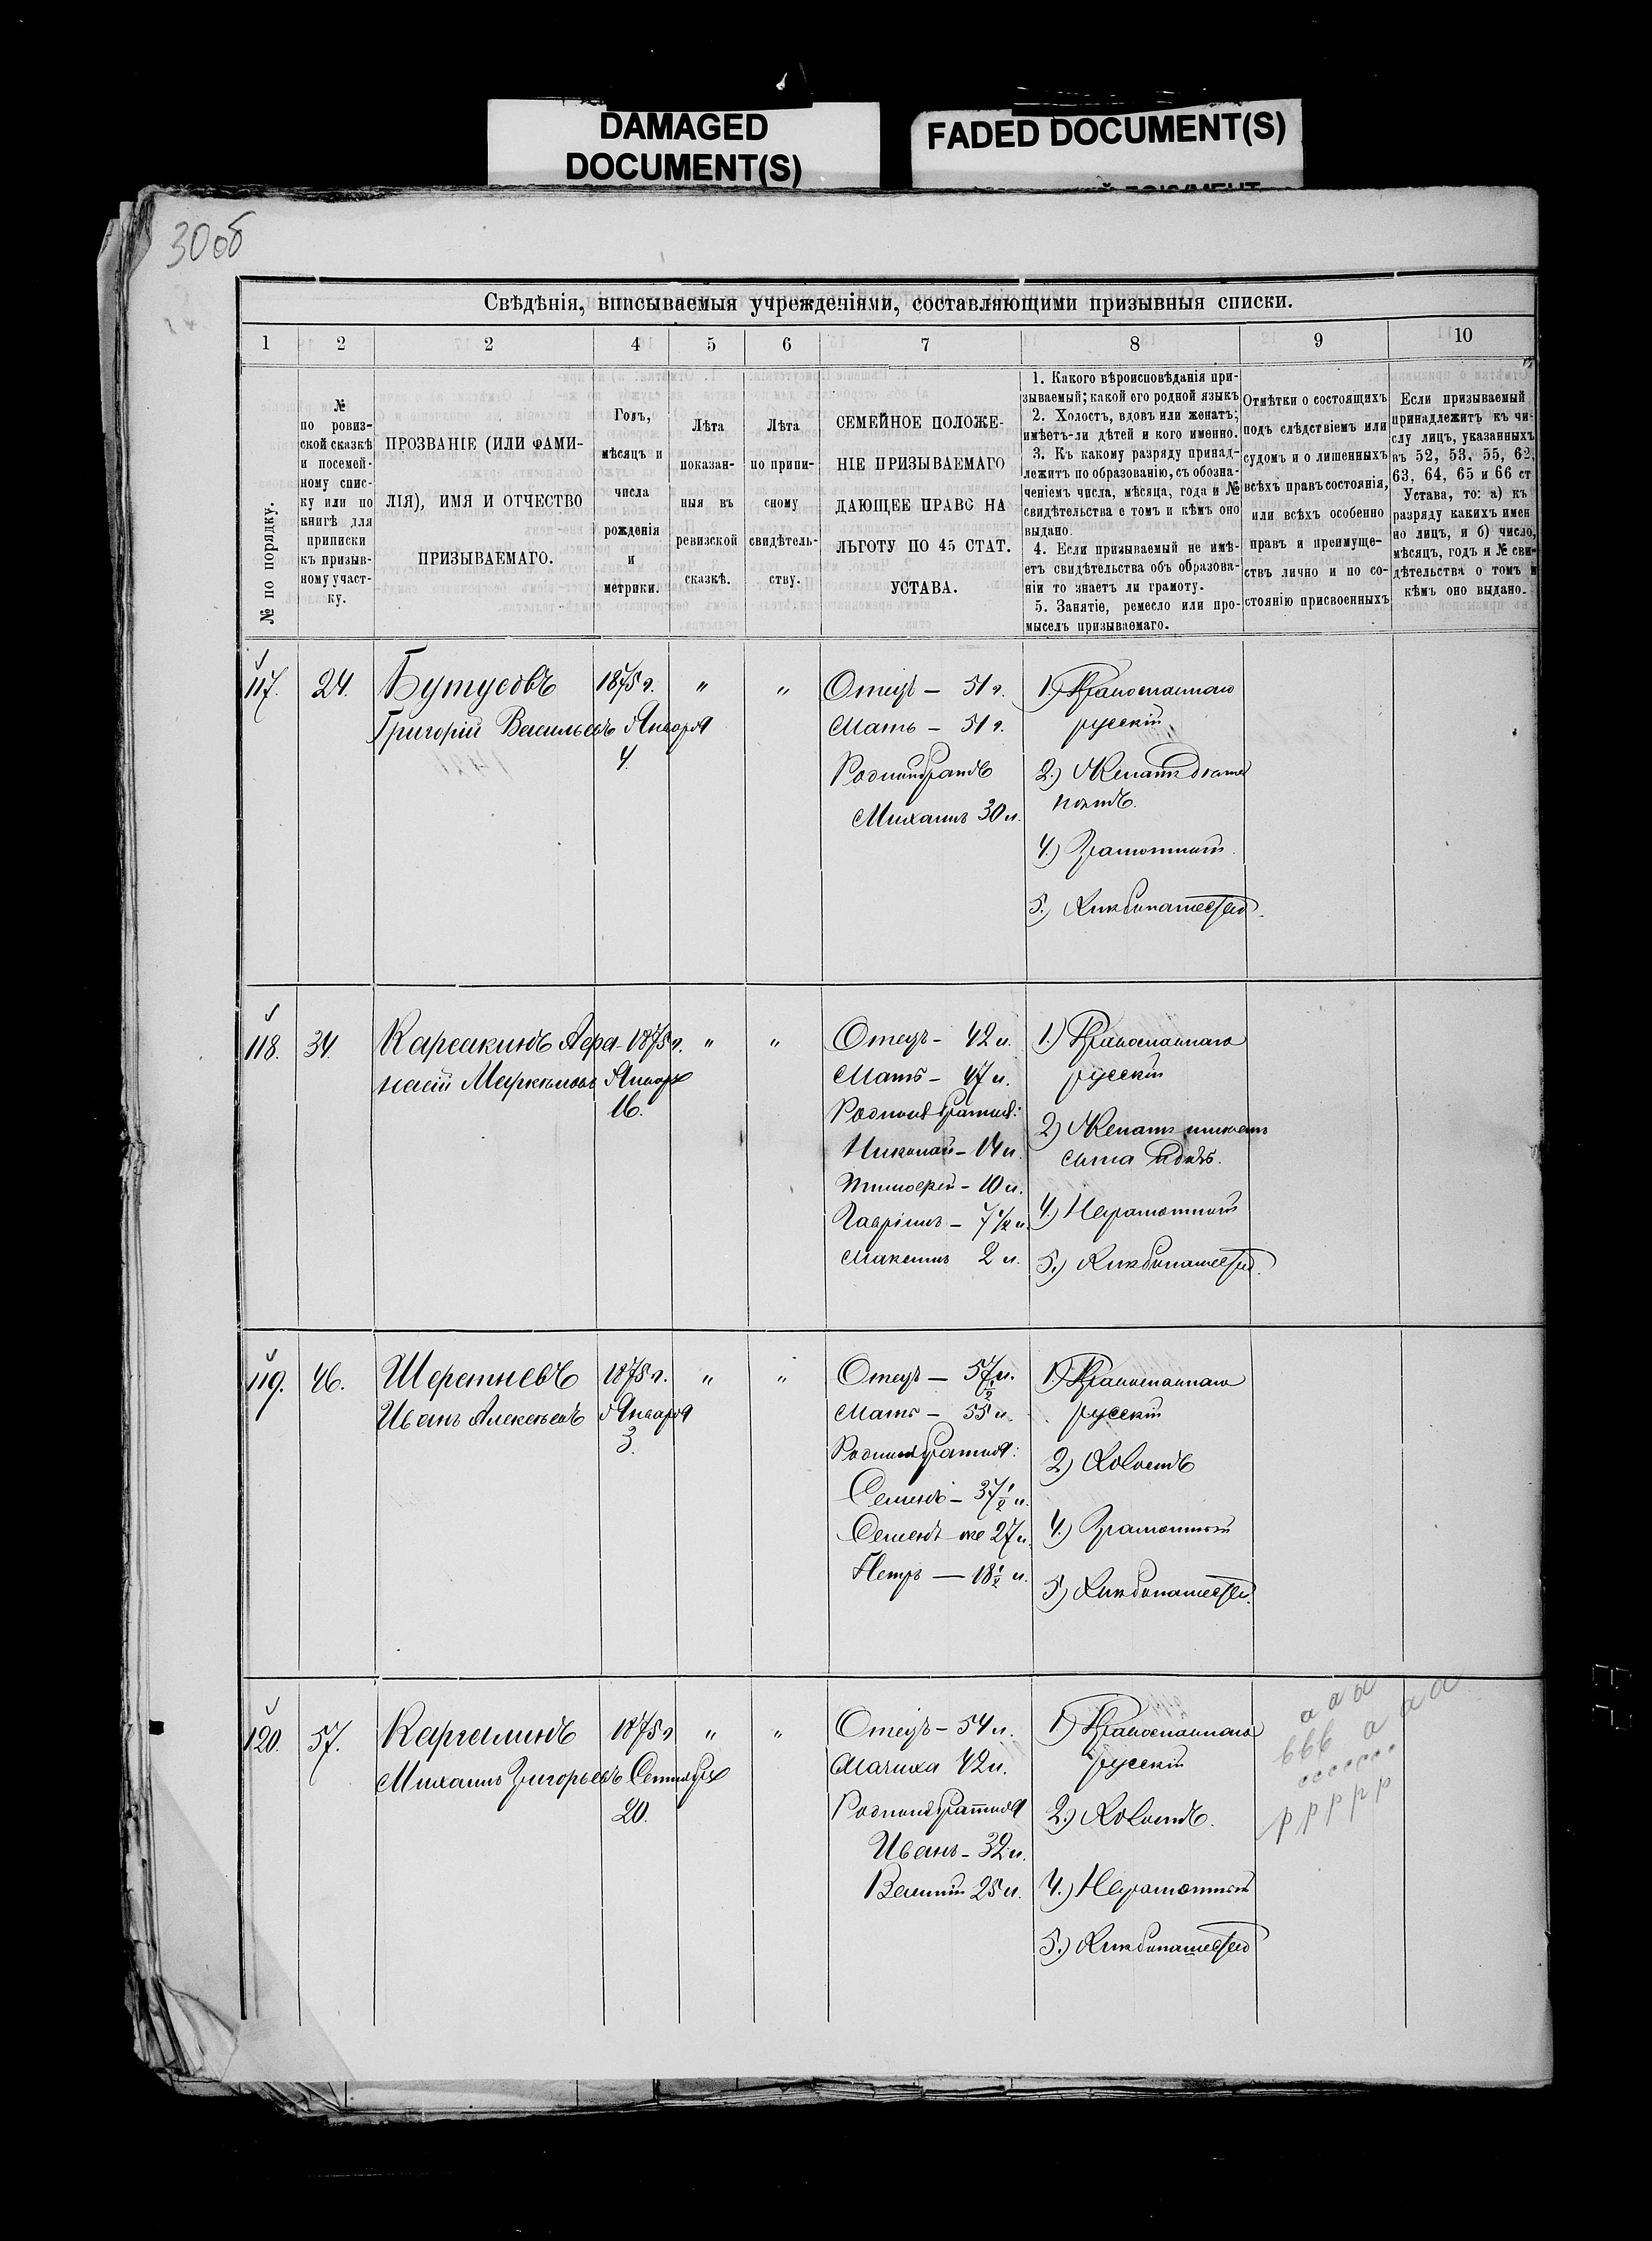 DAMAGED
DOCUMENT(S)
FADED DOCUMENT(S)
30об
Свѣдѣнія, вписываемыя учрежденіями, составляющими призывныя списки.
1 2 2 4 5 6 7 8 9 10
№ по порядку.
№
по ровиз-
ской сказкѣ
и посемей-
ному спис-
ку или по
книгѣ для
приписки
къ призыв-
ному участ-
ку.
ПРОЗВАНІЕ (ИЛИ ФАМИ-
ЛІЯ), ИМЯ И ОТЧЕСТВО
ПРИЗЫВАЕМАГО.
Годъ,
мѣсяцъ и
числа
рожденія
и
метрики.
Лѣта
показан-
ныя въ
ревизской
сказкѣ.
Лѣта
по припи-
сному
свидѣтель-
ству.
СЕМЕЙНОЕ ПОЛОЖЕ-
НІЕ ПРИЗЫВАЕМАГО
ДАЮЩЕЕ ПРАВО НА
ЛЬГОТУ ПО 45 СТАТ.
УСТАВА.
1. Какого вѣроисповѣданія при-
зываемый; какой его родной языкъ
2. Холостъ, вдовъ или женатъ;
имѣетъ-ли дѣтей и кого именно.
3. Къ какому разряду принад-
лежитъ по образованію, съ обозна-
ченіемъ числа, мѣсяца, года и №
свидѣтельства о томъ и кѣмъ оно
выдано.
4. Если призываемый не имѣ-
етъ свидѣтельства объ образова-
ніи то знаетъ ли грамоту.
5. Занятіе, ремесло или про-
мыселъ призываемаго.
Отмѣтки о состоящихъ
подъ слѣдствіемъ или
судомъ и о лишенныхъ
всѣхъ правъ состоянія,
или всѣхъ особенно
правъ и преимуще-
ствъ лично и по со-
стоянію присвоенныхъ
Если призываемый
принадлежитъ къ чи-
слу лицъ, указанныхъ
въ 52, 53, 55, 62,
63, 64, 65 и 66 ст
Устава, то: а) къ
разряду какихъ имен
но лицъ, и б) число,
мѣсяцъ, годъ и № сви-
дѣтельства о томъ и
кѣмъ оно выдано.
117. 24.
Бутусовъ
Григорій Васильевъ
1875 г.
Января
4.
" "
Отецъ – 51 г.
Мать – 51 г.
Родной братъ
Михаилъ 30 л.
1.) Православнаго
русскій
2.) Женатъ дѣтей
нѣтъ.
4.) Грамотный.
5.) Хлѣбопашество.
118. 34.
Карсакинъ Афа-
насій
1875 г.
Января
16.
" "
Отецъ – 42 л.
Мать – 47 л.
Родные братья:
Николай – 14 л.
Тимофей – 10 л.
Гавріилъ – 7 1/2 л.
Максимъ 2 л.
1.) Православнаго
русскій
2) Женатъ имѣетъ
сына
4.) Неграмотный
5.) Хлѣбопашество.
119. 46.
Шеретневъ
Иванъ Алексѣевъ
1875 г.
Января
3.
" "
Отецъ – 57 1/2 л.
Мать – 55 л.
Родные братья:
Семенъ – 37 1/2 л.
Семенъ же 27 л.
Петръ — 18 1/2 л.
1.) Православнаго
русскій
2) Холостъ
4.) Грамотный
5.) Хлѣбопашество.
120. 57.
Каргалинъ
Михаилъ Григорьевъ
1875 г.
Сентября
20.
" "
Отецъ – 54 л.
Мачиха 42 л.
Родные братья
Иванъ – 32 л.
Василій 25 л.
1) Православнаго
русскій
2.) Холостъ.
4.) Неграмотный
5.) Хлѣбопашество
а а а
ббб а а а
ссссссс
р р р р р